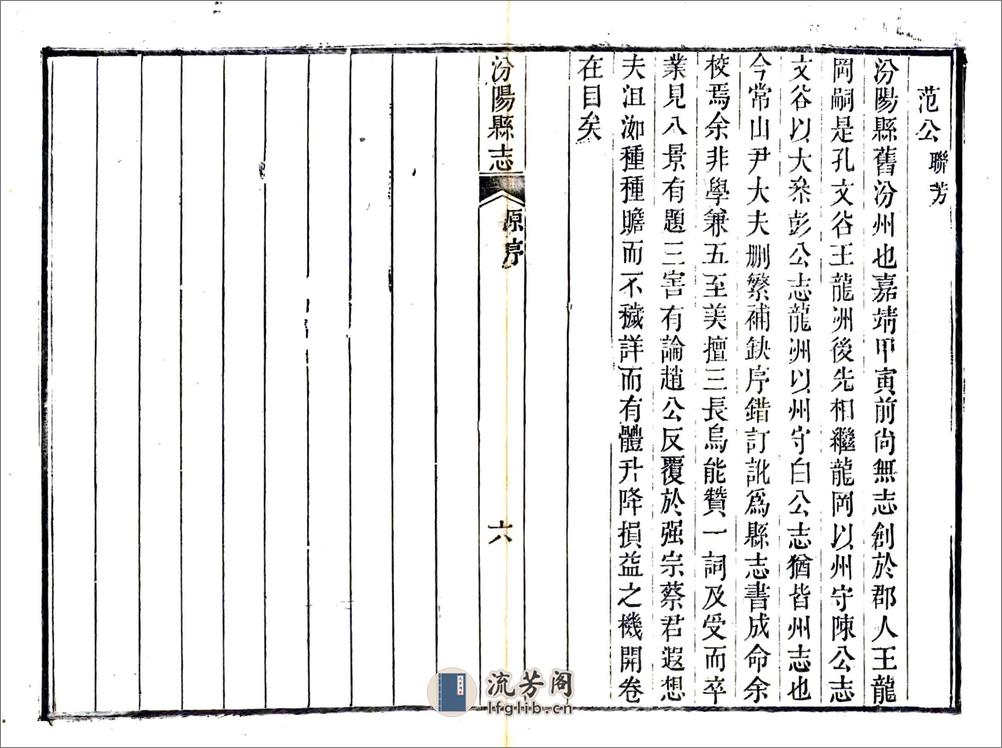 范公聯芳
汾陽縣舊汾州也嘉靖甲寅前尚無志創於郡人王龍
岡嗣是孔文谷王龍洲後先相繼龍岡以州守陳公志
文谷以大叅彭公志龍洲以州守白公志猶皆州志也
今常山尹大夫刪繁補缺序錯訂訛爲縣志書成命余
校焉余非學兼五至美擅三長烏能贊一詞及受而卒
業見八景有題三害有論趙公反覆於强宗蔡君遐想
夫沮洳種種贍而不穢詳而有體升降損益之機開卷
在目矣
汾陽縣志 原序 六
流芳阁
lfglib.cn